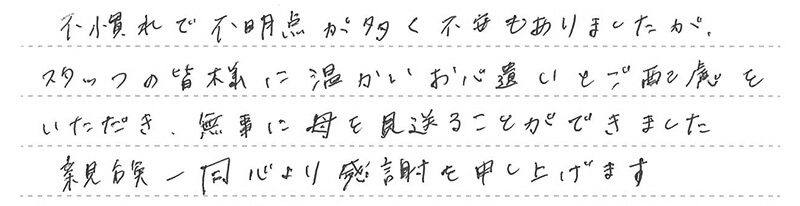 不慣れで不明点が多く不安もありましたが、
スタッフの皆様に温かいお心遣いとご配慮を
いただき、無事に母を見送ることができました
親族一同心より感謝を申し上げます